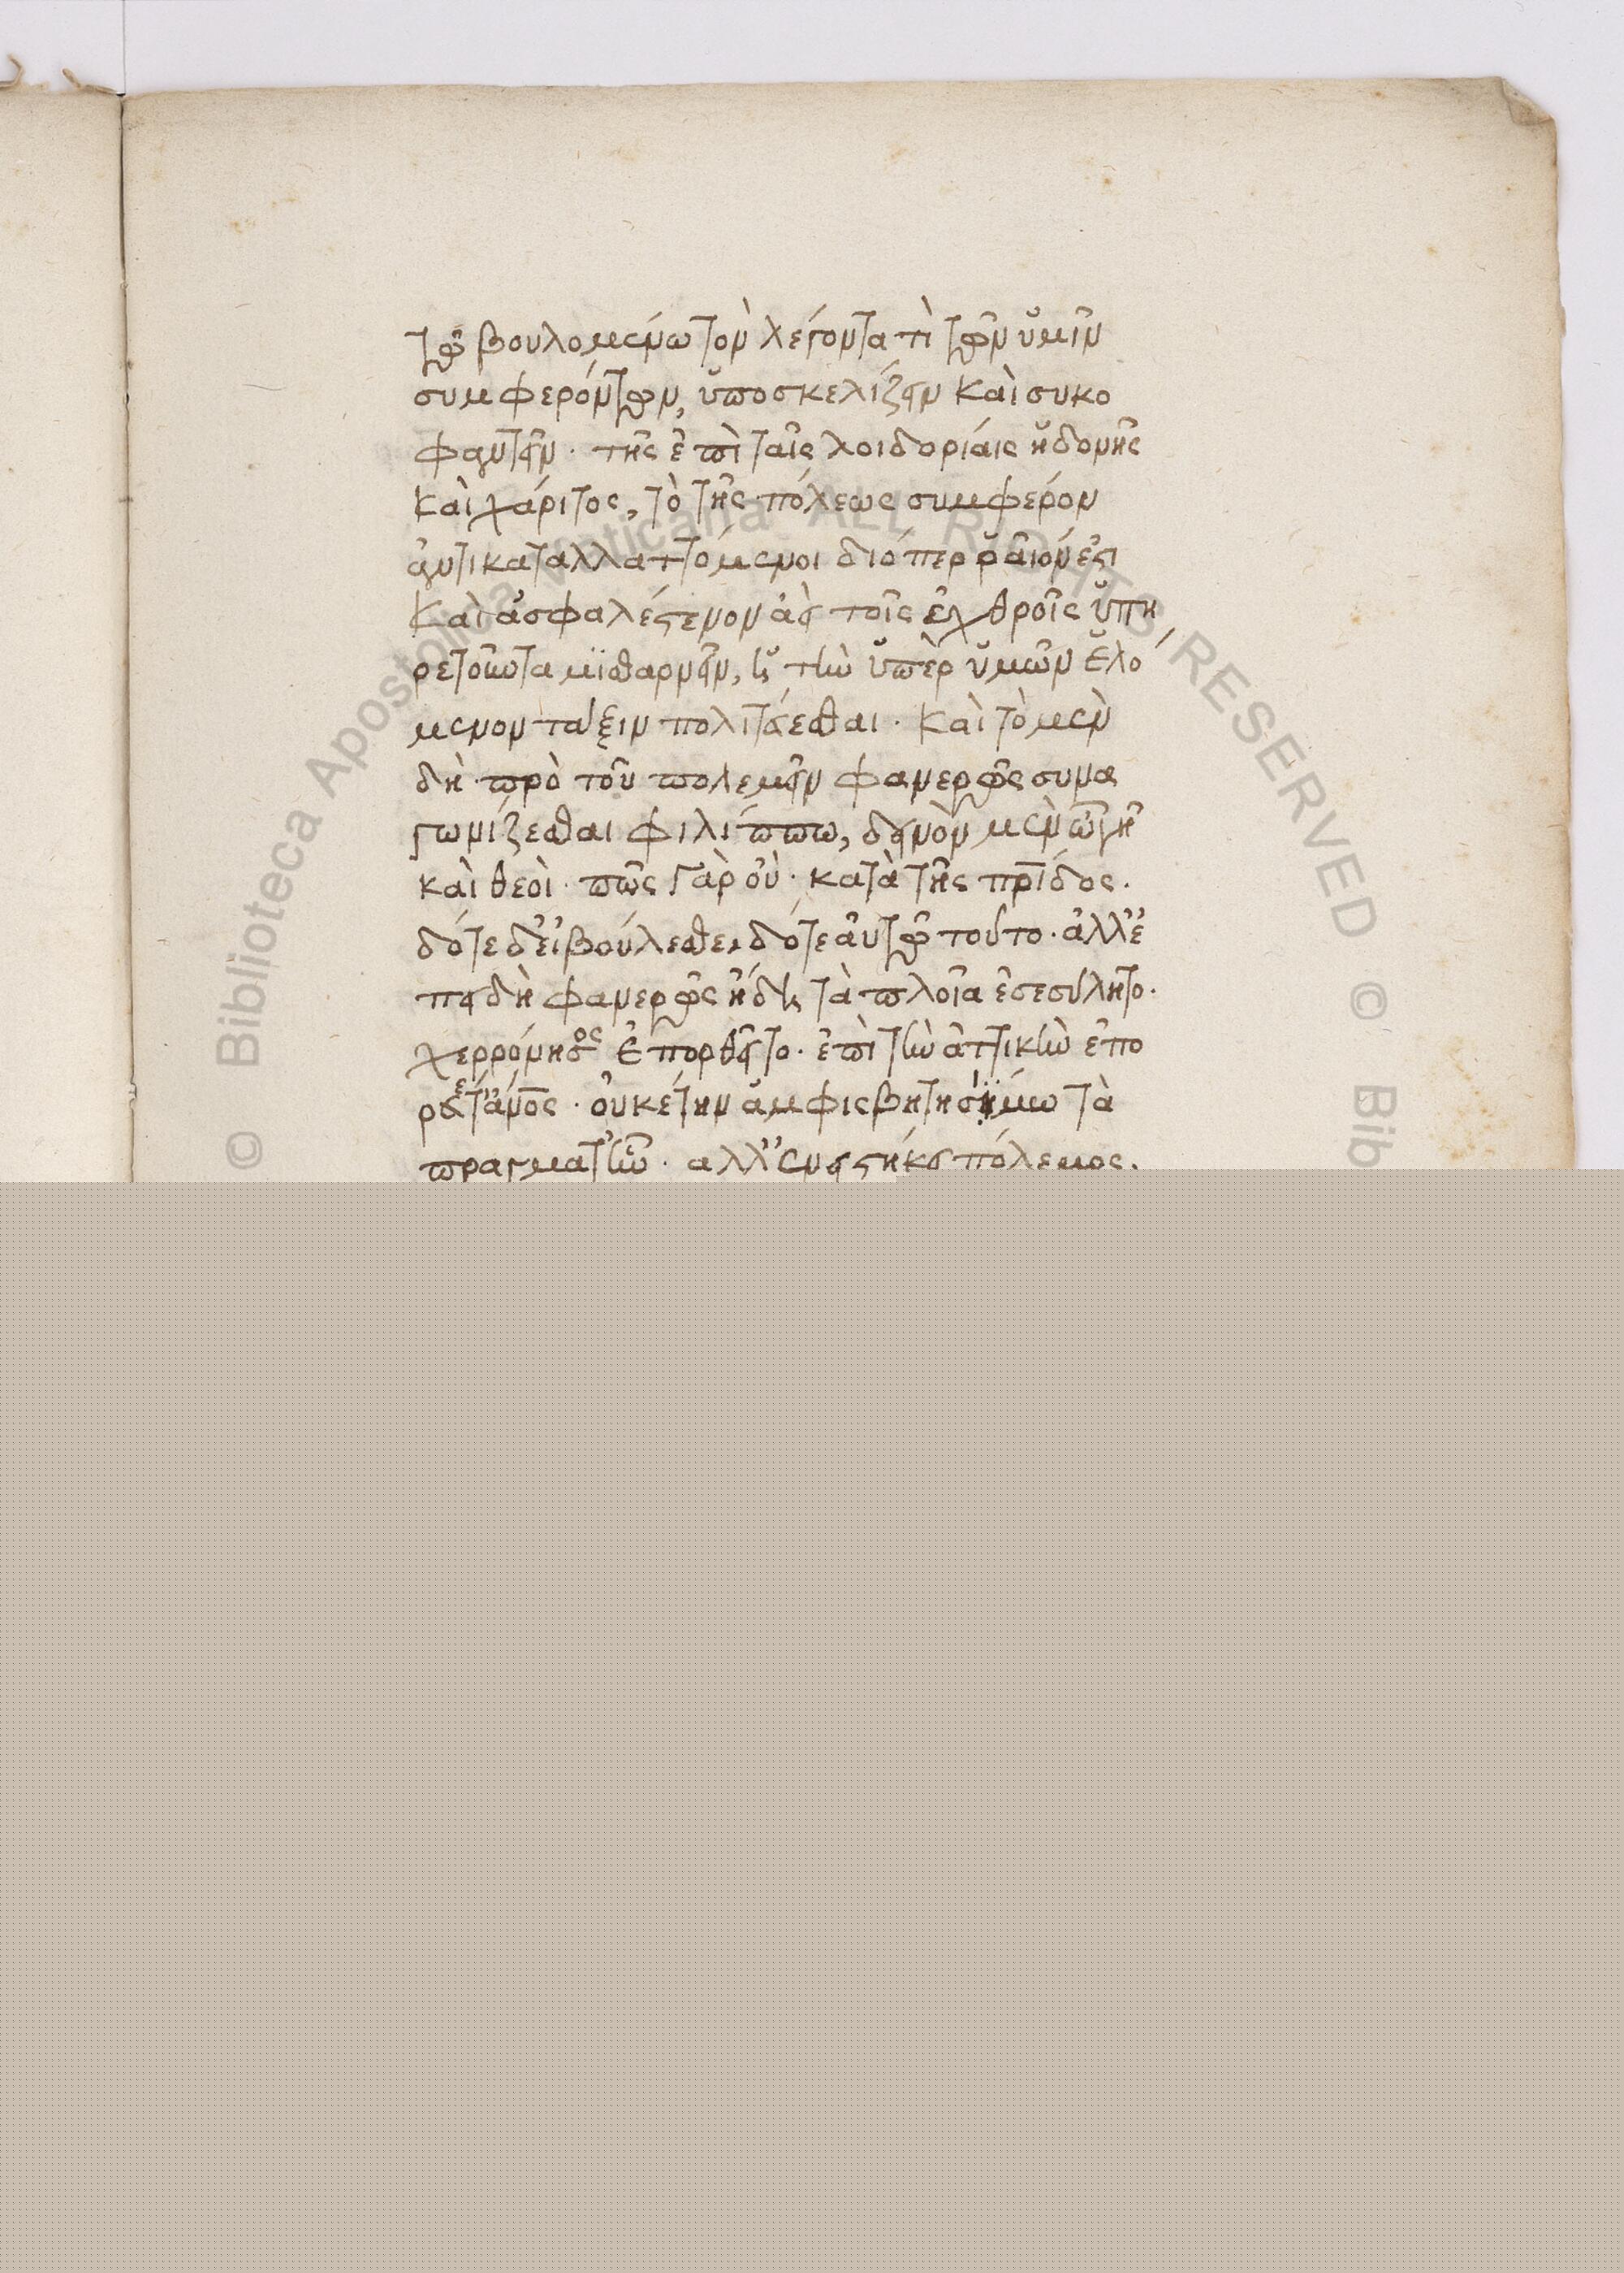 τῷ βουλομένω τὸν λέγοντα τὶ τῶν ὑμῖν
συμφερόντων, ὑποσκελίζειν καὶ συκο
φαντεῖν· τῆς ἐπὶ ταῖς λοιδορίαις ἡδονῆς
καὶ χάριτος, τὸ τῆς πόλεως συμφέρον
ἀντικαταλλαττόμενοι διόπερ ῥᾶιόν ἐστι
καὶ ἀσφαλέστερον ἀεὶ τοῖς ἐχθροῖς ὑπη
ρετοῦντα μισθαρνεῖν, ἢ τὴν ὑπὲρ ὑμῶν ἑλό
μενον τάξιν πολιτεύεσθαι· καὶ τὸ μὲν
δὴ πρὸ τοῦ πολεμεῖν φανερῶς συνα
γωνίζεσθαι φιλίππω, δεινὸν μὲν ὦ γῆ
καὶ θεοὶ· πῶς γὰρ οὐ· κατὰ τῆς πρίδος.
δότε δ' εἰ βούλεσθε, δότε αὐτῷ τοῦτο· ἀλλ' ἐ
πειδὴ φανερῶς ἤδη τὰ πλοῖα ἐσεσύλητο·
χερρόνησος ἐπορθεῖτο· ἐπὶ τὴν ἀττικὴν ἐπο
ρεύετο ἅνος· οὐκέτ' ἦν ἀμφισβητησίμω τὰ
πράγματ' ἦν· ἀλλ' ἐνειστήκει πόλεμος.
© Biblioteca Apostolica Vaticana ALL RIGHTS RESERVED © Bib